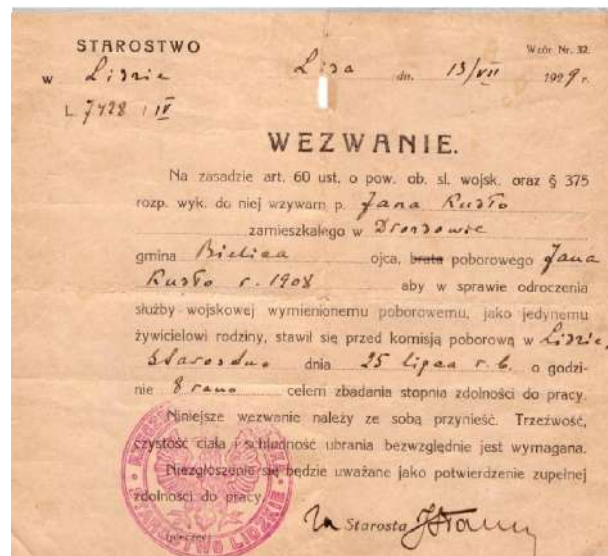 STAROSTWO
Wzór Nr. 32.
w Lidzie
Lida dn. 13/VII 1929 r.
L. 7428 / IV
WEZWANIE.
Na zasadzie art. 60 ust. o pow. ob. sł. wojsk. oraz § 375
rozp. wyk. do niej wzywam p. Jana Kusło
zamieszkałego w
gmina Bielica ojca, brata poborowego Jana
Kusło r. 1908 aby w sprawie odroczenia
służby wojskowej wymienionemu poborowemu, jako jedynemu
żywicielowi rodziny, stawił się przed komisją poborową w Lidzie,
Starostwo dnia 25 lipca r. b. o godzi-
nie 8 rano celem zbadania stopnia zdolności do pracy.
Niniejsze wezwanie należy ze sobą przynieść. Trzeźwość,
czystość ciała i schludność ubrania bezwzględnie jest wymagana.
Niezgłoszenie się będzie uważane jako potwierdzenie zupełnej
zdolności do pracy.
Za Starosta
STAROSTWO LIDZKIE